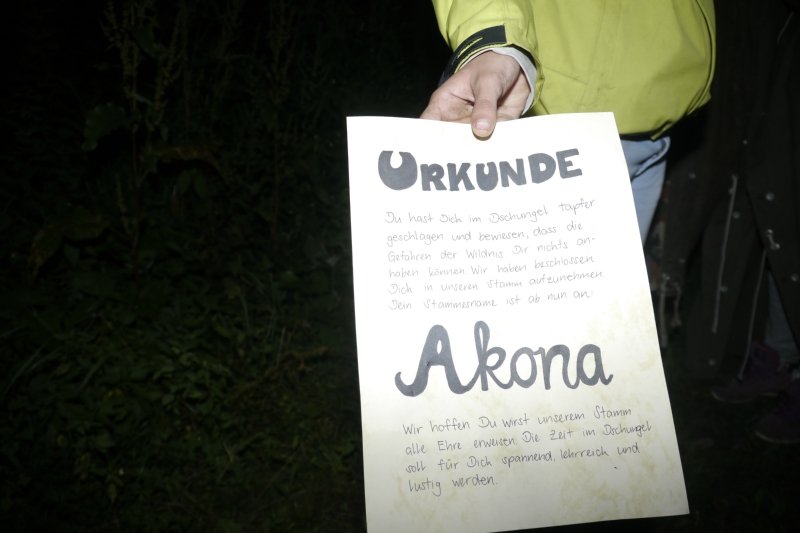 URKUNDE
Du hast Dich im Dschungel tapfer
geschlagen und bewiesen, dass die
Gefahren der Wildnis Dir nichts an-
haben können. Wir haben beschlossen
Dich in unseren Stamm aufzunehmen.
Dein Stammesname ist ab nun an:
Akona
Wir hoffen Du wirst unserem Stamm
alle Ehre erweisen. Die Zeit im Dschungel
soll für Dich spannend, lehrreich und
lustig werden.